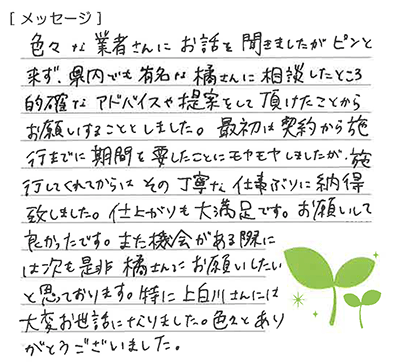 [メッセージ]
色々な業者さんにお話を聞きましたがピンと
来ず、県内でも有名な橘さんに相談したところ
的確なアドバイスや提案をして頂けたことから
お願いすることとしました。最初は契約から施
行までに期間を要したことにモヤモヤしましたが、施
行してくれてからはその丁寧な仕事ぶりに納得
致しました。仕上がりも大満足です。お願いして
良かったです。また機会がある際に
は次も是非橘さんにお願いしたい
と思っております。特に上白川さんには
大変お世話になりました。色々とあり
がとうございました。